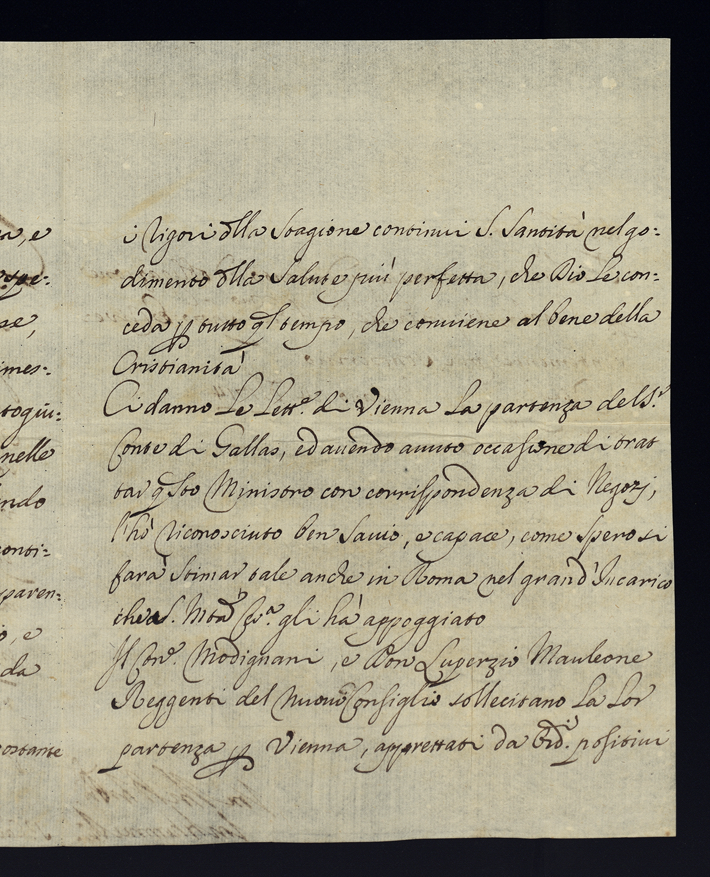 ra, e
se,
imes=
nelle
ando
conti=
paren=
o, e
da
costante
i rigori dlla Stagione continui S. Santità nel go=
dimento dlla Salute più perfetta, che Dio Le con=
ceda p tutto ql tempo, che conviene al bene della
Cristianità
Ci danno Le Lettre di Vienna La partenza del Sr
Conte di Gallas, ed avendo avuto occasione di trat
tar qsto Ministro con corrispondenza di Negozj,
l'hò riconosciuto ben savio, e capace, come spero si
farà stimar tale anche in Roma nel grand'Incarico
che S. Mtà gli hà appoggiato
Il Modignani, e Don Luperzio Mauleone
Reggenti del nuovo Consiglio sollecitano La Lor
partenza p Vienna, apprettati da Ordi positivi